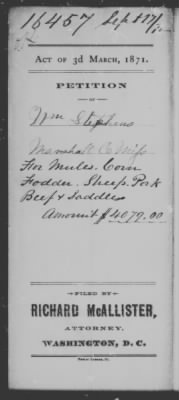 16457 Sept 17/72
ACT OF 3D MARCH, 1871.
PETITION
OF
Wm Stephens
Marshall Co Miss
For Mules. Corn
Fodder. Sheep. Pork
Beef & Saddles
Amount $4079.00
FILED BY
RICHARD McALLISTER,
ATTORNEY,
WASHINGTON, D. C.